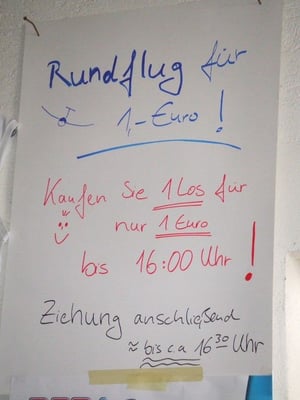 Rundflug für
1,- Euro !
Kaufen Sie 1 Los für
nur 1 Euro
bis 16:00 Uhr !
Ziehung anschließend
≈ bis c.a 16³⁰ Uhr